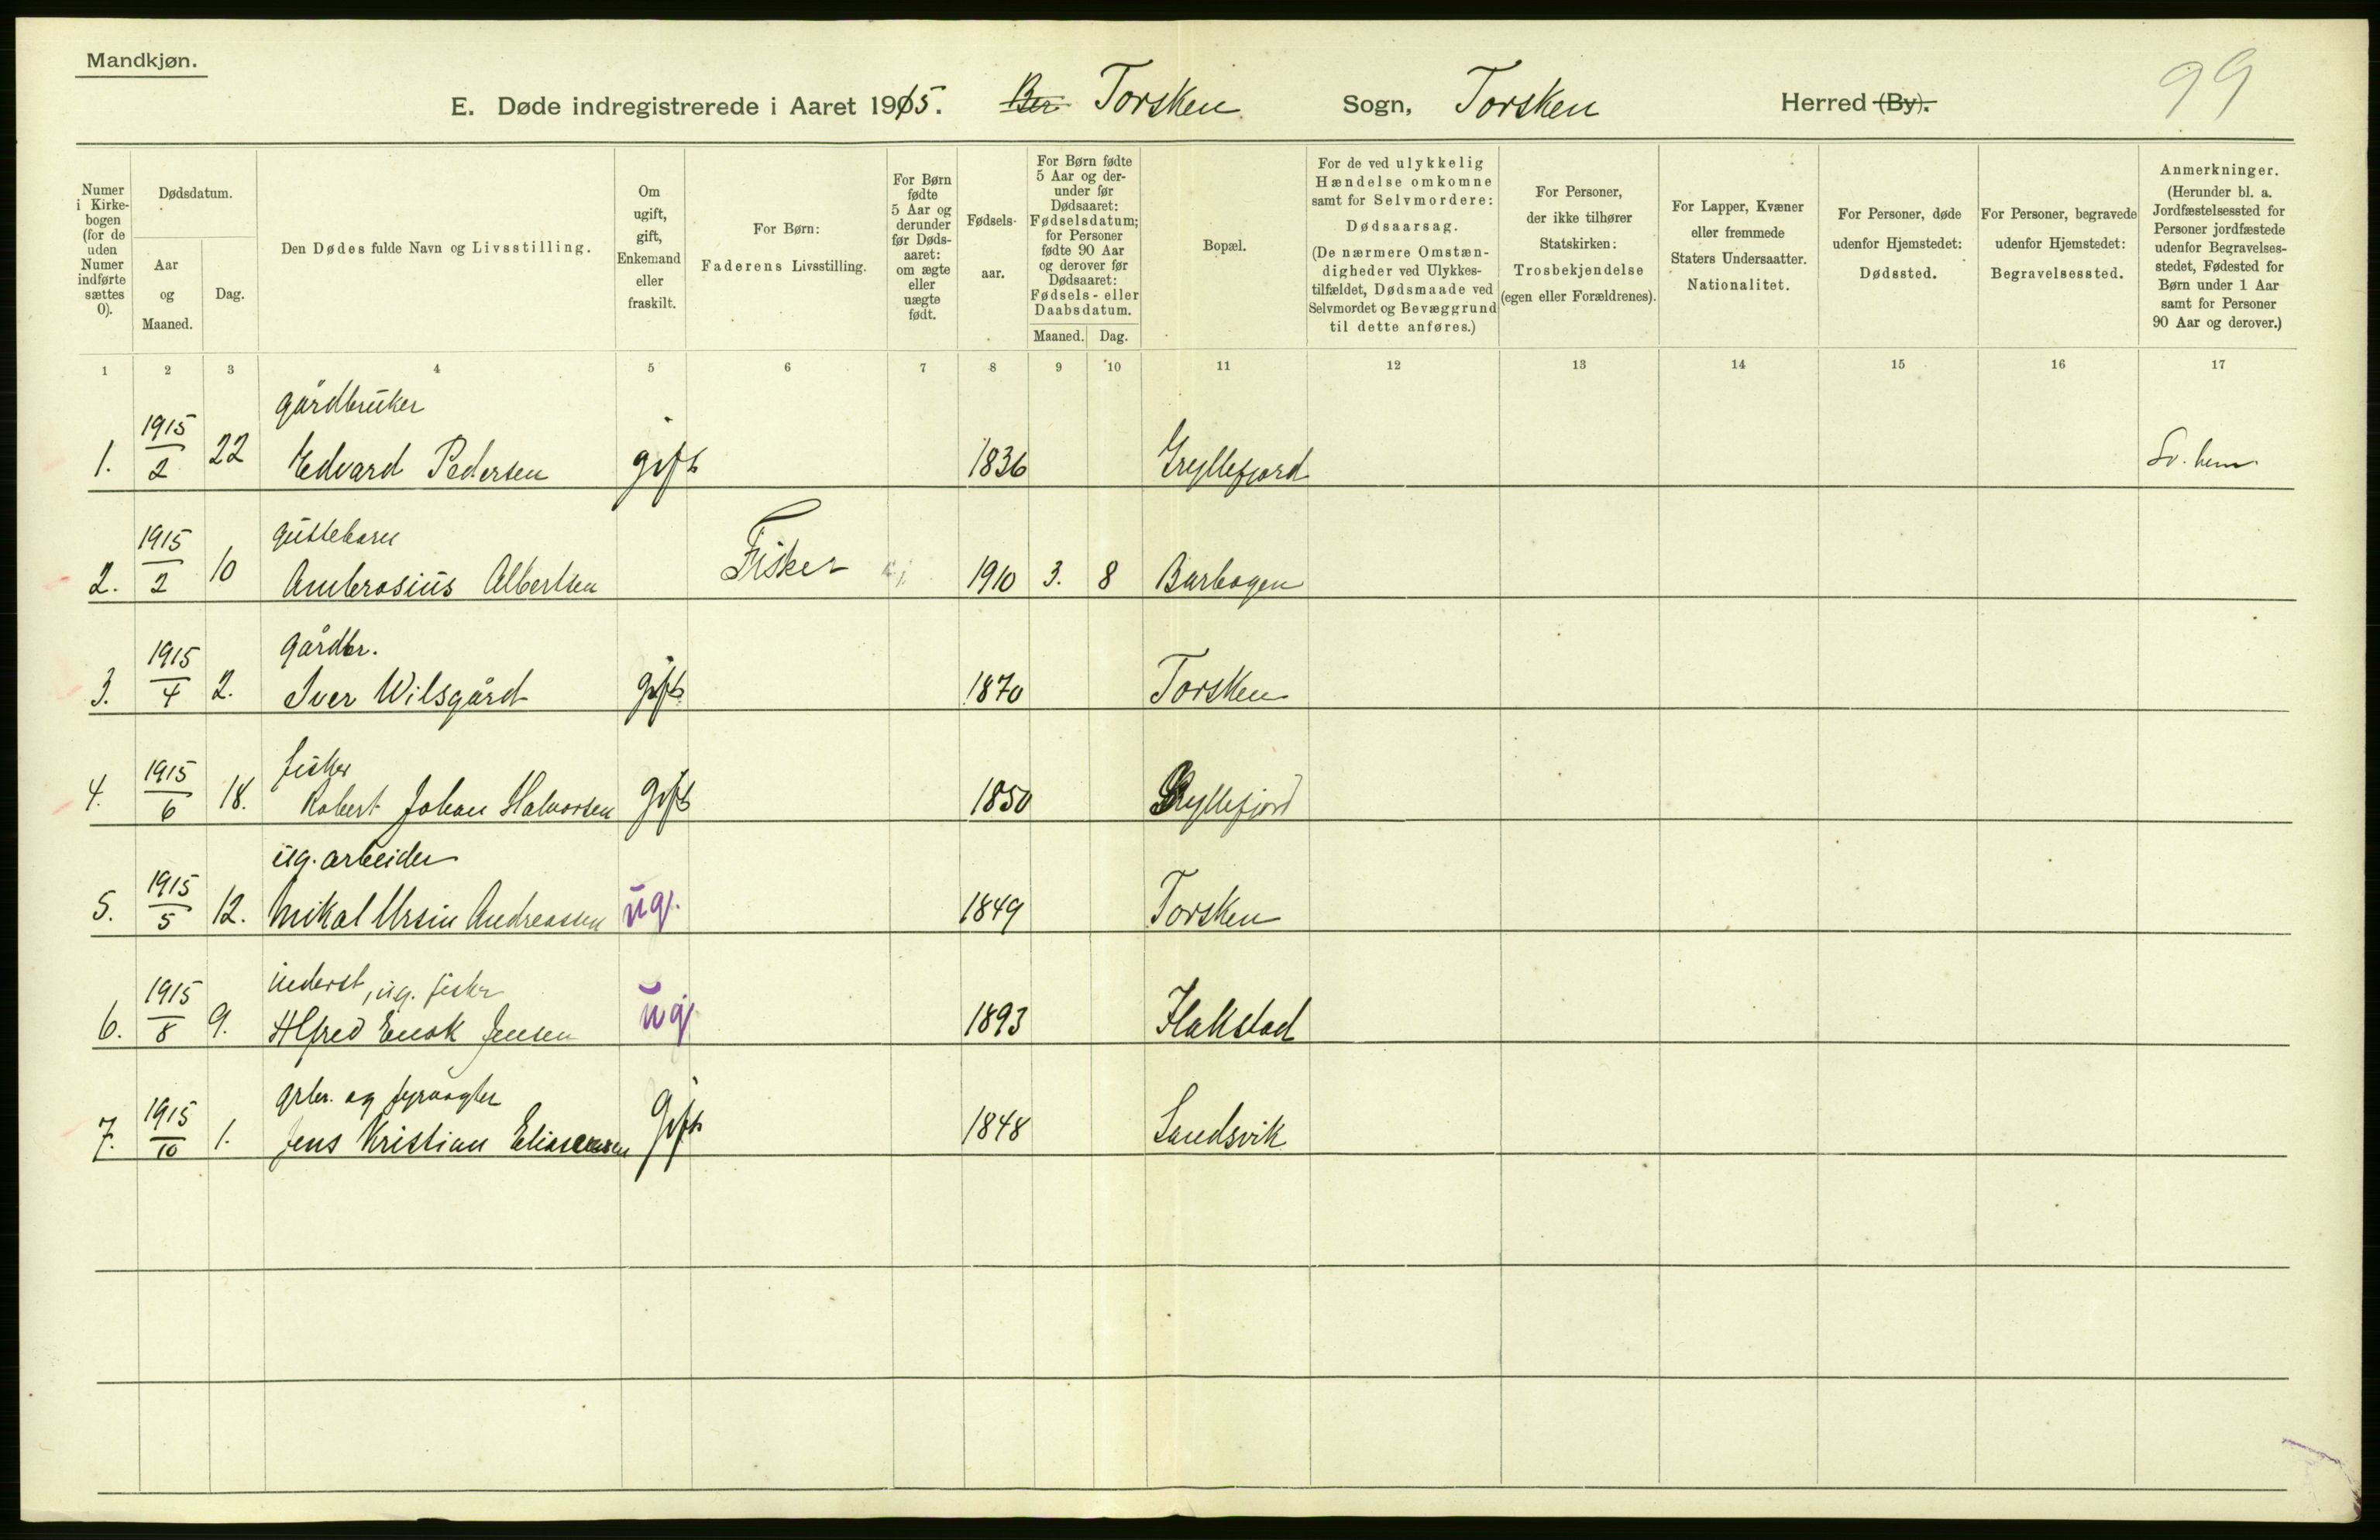 Mandkjøn.
99
E. Døde indregistrerede i Aaret 1915. Ber Torsken Sogn, Torsken Herred (By).
Numer i Kirkebogen (for de uden Numer indførte sættes 0).
Dødsdatum.
Aar og Maaned.
Dag.
Den Dødes fulde Navn og Livsstilling.
Om ugift, gift, Enkemand eller fraskilt.
For Børn: Faderens Livsstilling.
For Børn fødte 5 Aar og derunder før Dødsaaret: om ægte eller uægte født.
Fødselsaar.
For Børn fødte 5 Aar og derunder før Dødsaaret: Fødselsdatum; for Personer fødte 90 Aar og derover før Dødsaaret: Fødsels- eller Daabsdatum.
Maaned. Dag.
Bopæl.
For de ved ulykkelig Hændelse omkomne samt for Selvmordere: Dødsaarsag. (De nærmere Omstændigheder ved Ulykkestilfældet, Dødsmaade ved Selvmordet og Bevæggrund til dette anføres.)
For Personer, der ikke tilhører Statskirken: Trosbekjendelse (egen eller Forældrenes).
For Lapper, Kvæner eller fremmede Staters Undersaatter. Nationalitet.
For Personer, døde udenfor Hjemstedet: Dødssted.
For Personer, begravede udenfor Hjemstedet: Begravelsessted.
Anmerkninger. (Herunder bl. a. Jordfæstelsessted for Personer jordfæstede udenfor Begravelsesstedet, Fødested for Børn under 1 Aar samt for Personer 90 Aar og derover.)
1 2 3 4 5 6 7 8 9 10 11 12 13 14 15 16 17
gårdbruker
1. 1915/2 22 Edvard Pedersen gift 1836 Gryllefjord
guttebarn
2. 1915/2 10 Ambrosius Albertsen Fisker 1910 3. 8 Barbogen
gårdbr.
3. 1915/4 2. Iver Wilsgård gift 1870 Torsken
fisker
4. 1915/6 18. Robert Johan Halvorsen gift 1850 Gryllefjord
ug. arbeider
5. 1915/5 12. Mikal Ursin Andreassen ug. 1849 Torsken
inderst, ug. fisker
6. 1915/8 9. Alfred Enok Jensen ug. 1893 Flakstad
grbr. og fyrvogter
7. 1915/10 1. Jens Kristian Eliassen gift 1848 Sandsvik